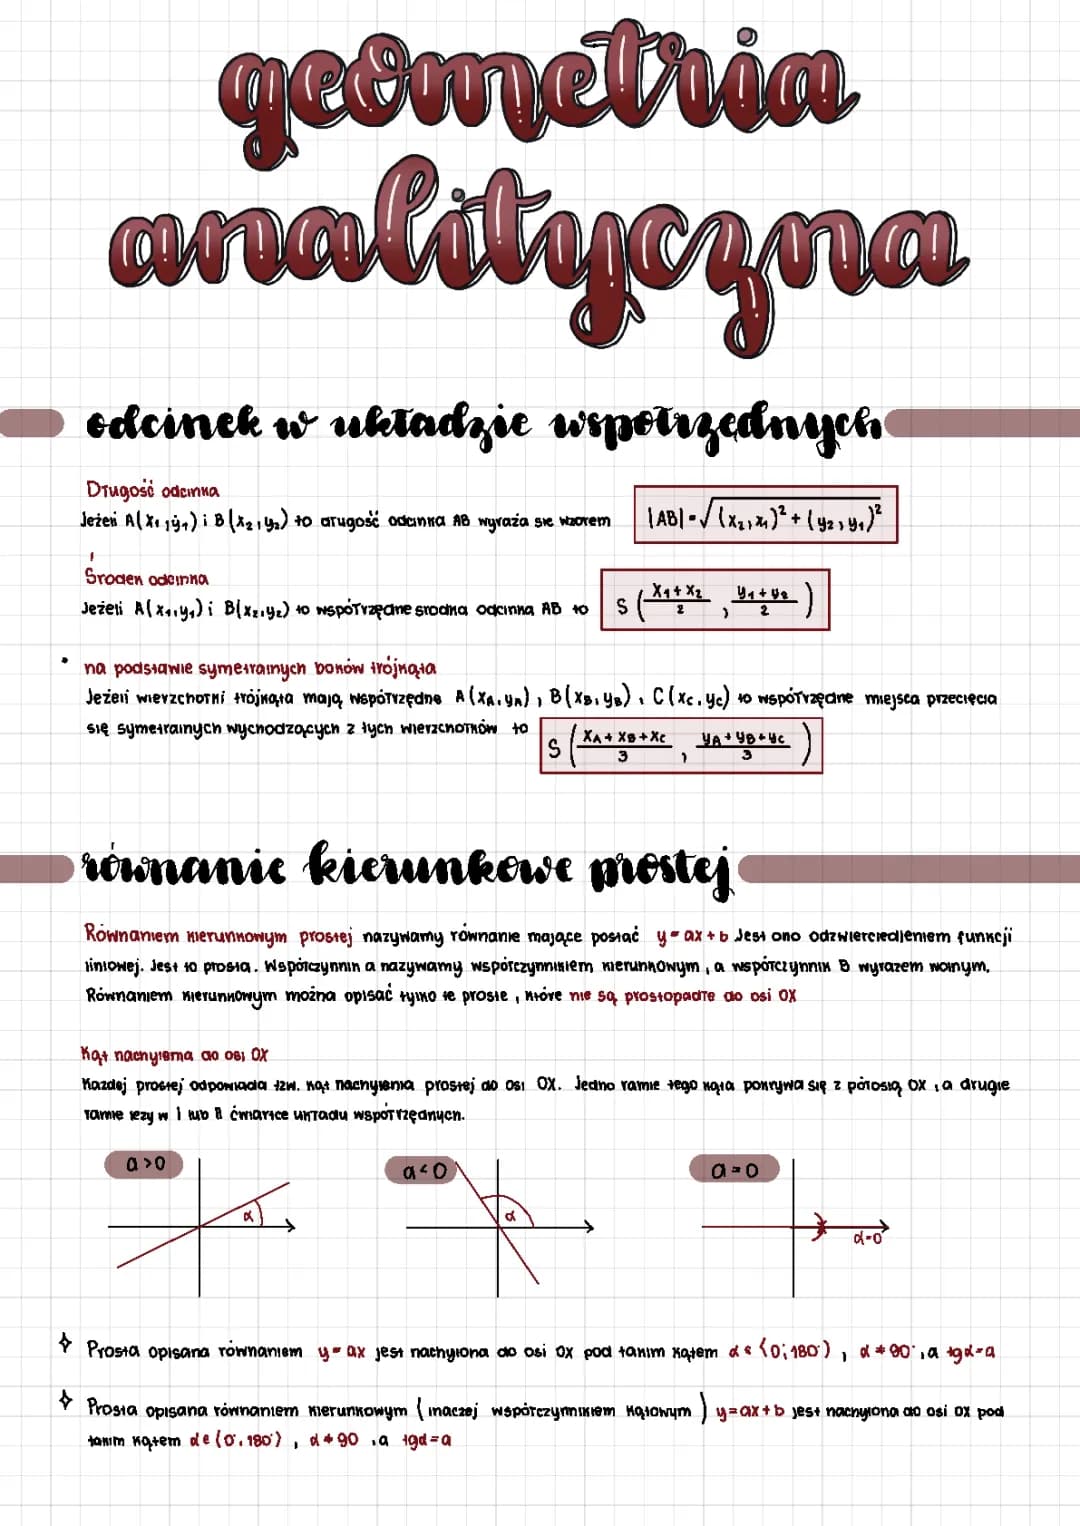 geometria
analityczna
odcinek w układzie współrzędnych
Długość odcinka
Jeżeli A(x₁,y₁) i B(x₂,y₂) to długość odcinka AB wyraża się wzorem |AB|=√(x₂,x₁)²+(y₂,y₁)²
Środek odcinka
Jeżeli A(x₁,y₁) i B(x₂,y₂) to współrzędne środka odcinka AB to S(x₁+x₂/2, y₁+y₂/2)
• na podstawie symetralnych boków trójkąta
Jeżeli wierzchołki trójkąta mają współrzędne A(xA,yA), B(xB,yB), C(xC,yC) to współrzędne miejsca przecięcia
się symetralnych wychodzących z tych wierzchołków to S(xA+xB+xC/3, yA+yB+yC/3)
równanie kierunkowe prostej
Równaniem kierunkowym prostej nazywamy równanie mające postać y=ax+b Jest ono odzwierciedleniem funkcji
liniowej. Jest to prosta. Współczynnik a nazywamy współczynnikiem kierunkowym, a współczynnik B wyrazem wolnym.
Równaniem kierunkowym można opisać tylko te proste, które nie są prostopadłe do osi OX
Kąt nachylenia do osi OX
Każdej prostej odpowiada tzw. kąt nachylenia prostej do osi OX. Jedno ramie tego kąta pokrywa się z półosią OX, a drugie
ramie leży w I lub II ćwiartce układu współrzędnych.
a>0 a<0 a=0
α α α=0
Prosta opisana równaniem y=ax jest nachylona do osi OX pod takim kątem α∈⟨0°;180°), α≠90°, a tgα=a
Prosta opisana równaniem kierunkowym (inaczej współczynnikiem kątowym) y=ax+b jest nachylona do osi OX pod
takim kątem α∈(0°,180°), α≠90, a tgα=a